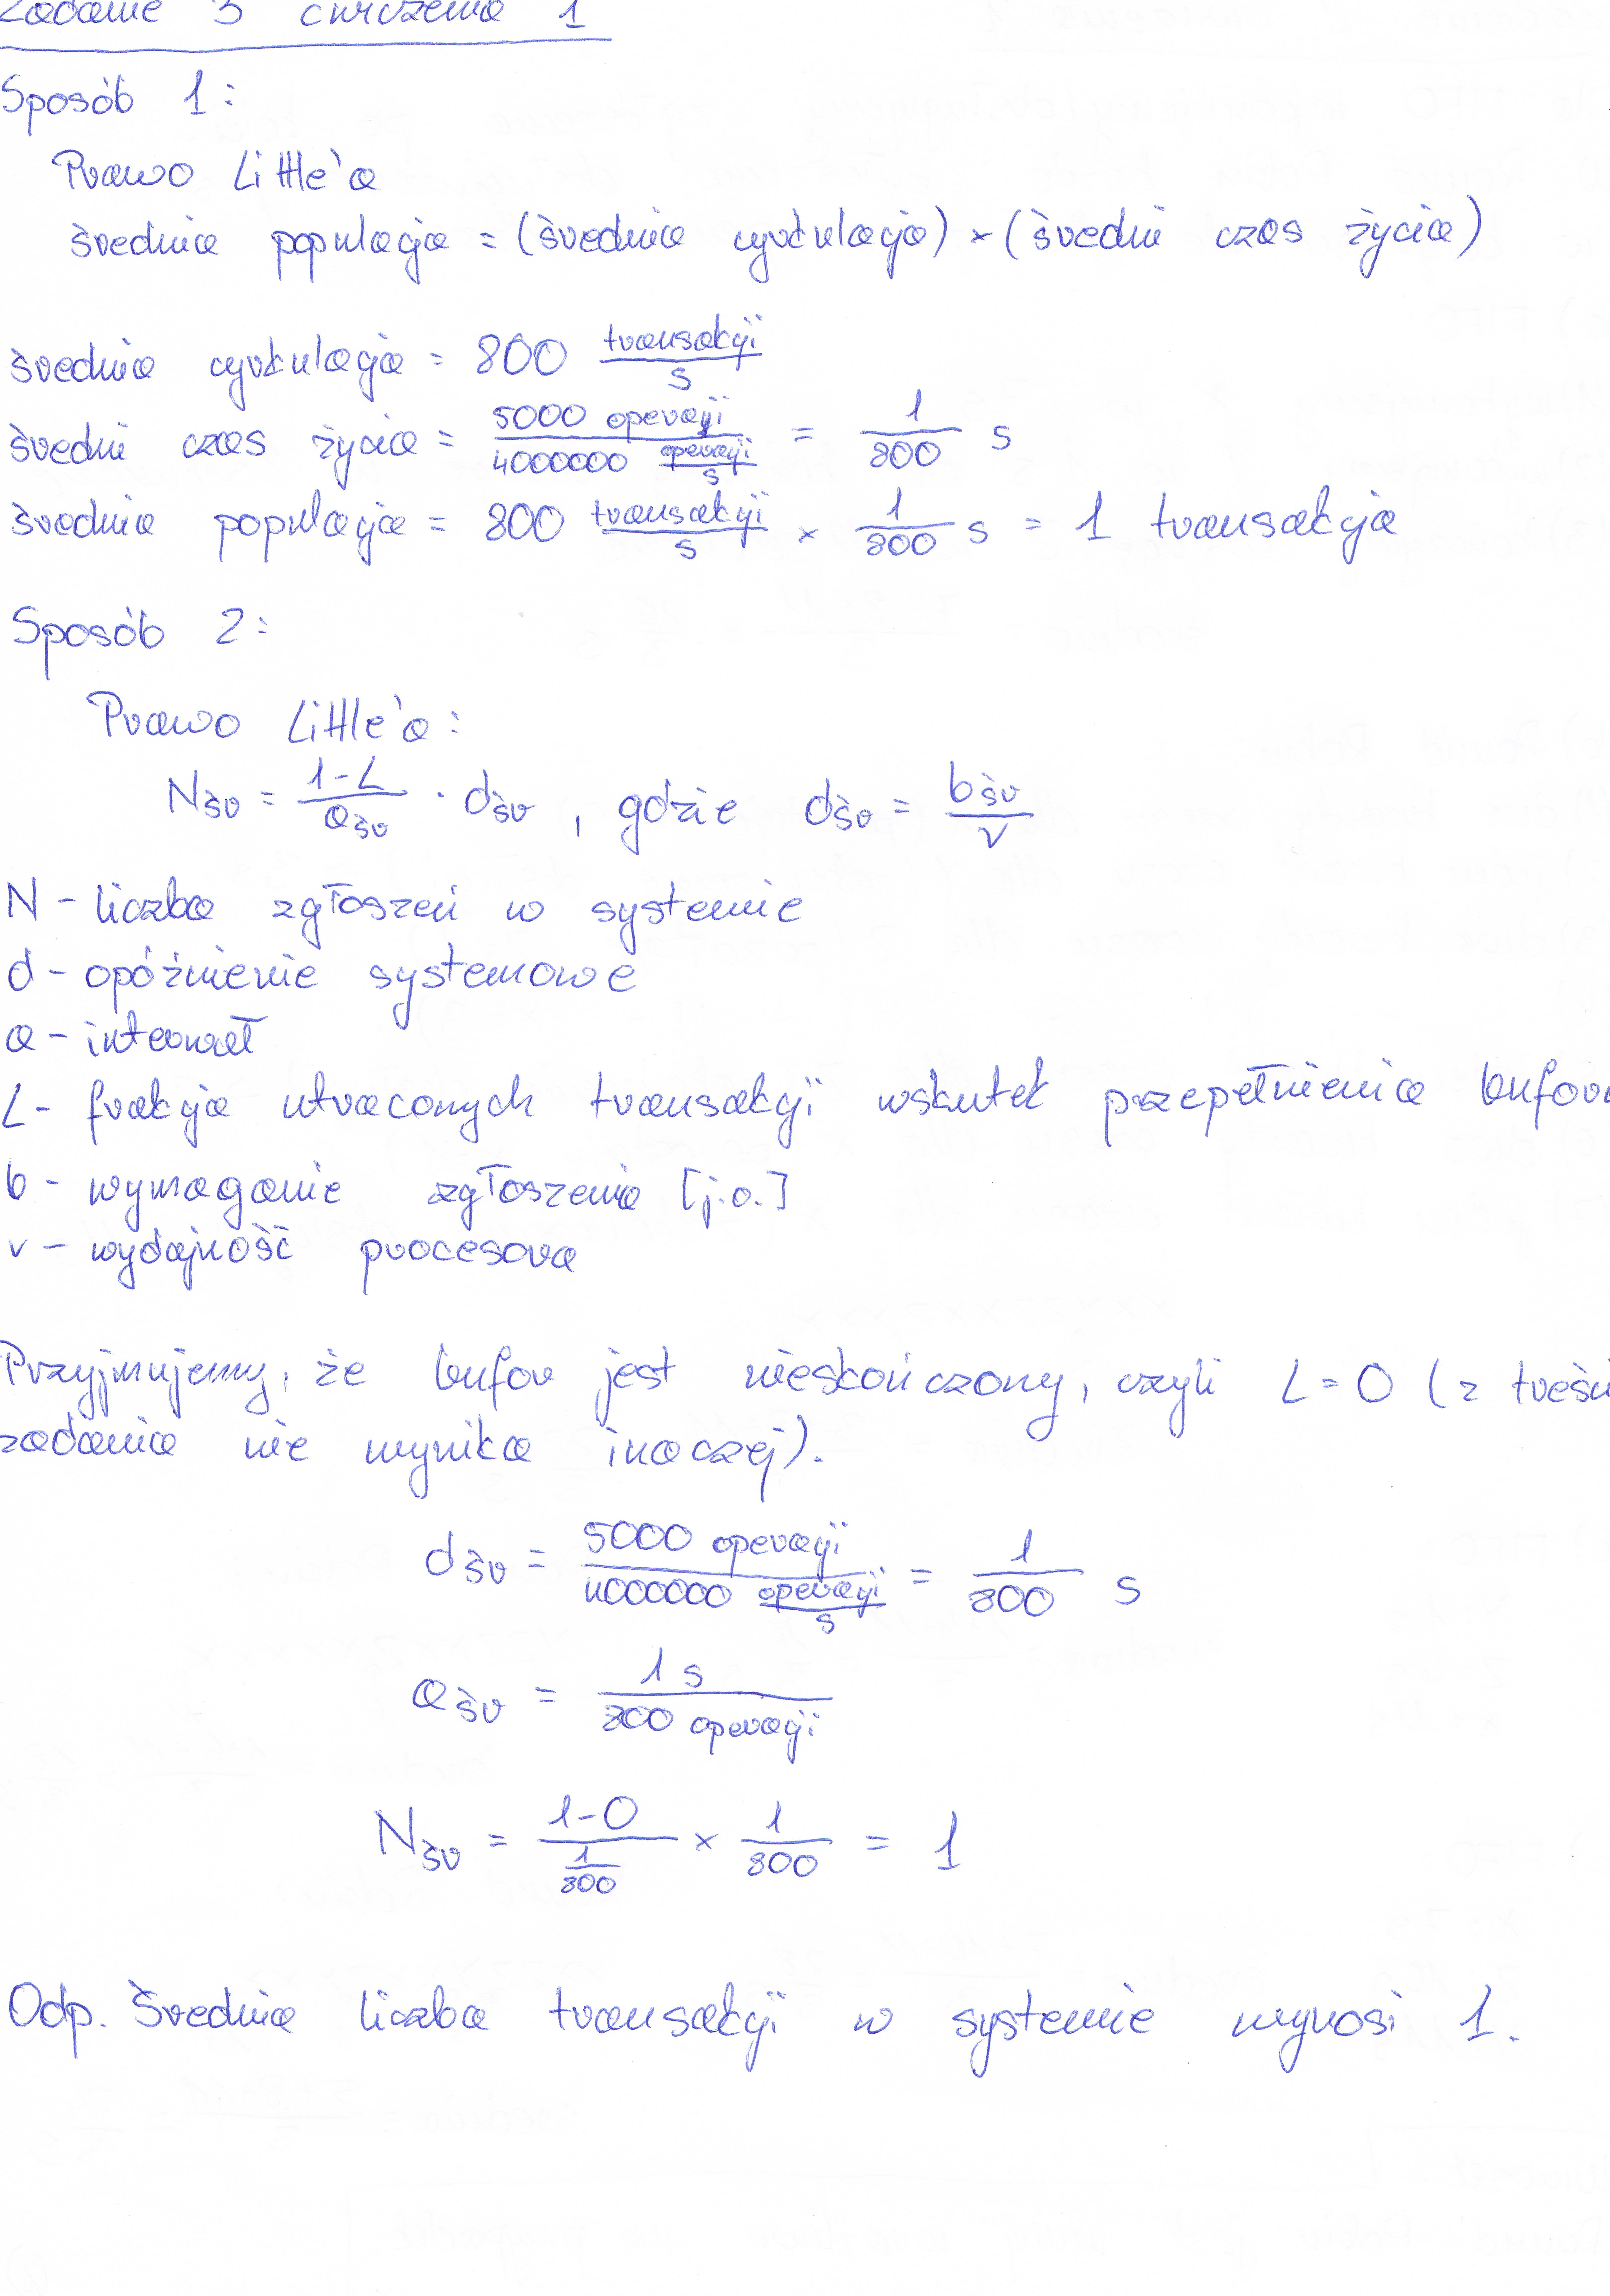 Zadanie 3 ćwiczenia 1
Sposób 1:
Prawo Little'a
średnia populacja = (średnia cyrkulacja) × (średni czas życia)
średnia cyrkulacja = 800 transakcji/s
średni czas życia = 5000 operacji / 4000000 operacji/s = 1/800 s
średnia populacja = 800 transakcji/s × 1/800 s = 1 transakcja
Sposób 2:
Prawo Little'a:
Nśr = (1-L)/aśr · dśr , gdzie dśr = bśr/v
N - liczba zgłoszeń w systemie
d - opóźnienie systemowe
a - interwał
L - frakcja utraconych transakcji wskutek przepełnienia bufora
b - wymaganie zgłoszenia [j.o.]
v - wydajność procesora
Przyjmujemy, że bufor jest nieskończony, czyli L = 0 (z treści
zadania nie wynika inaczej).
dśr = 5000 operacji / 4000000 operacji/s = 1/800 s
aśr = 1 s / 800 operacji
Nśr = (1-0)/(1/800) × 1/800 = 1
Odp. Średnia liczba transakcji w systemie wynosi 1.